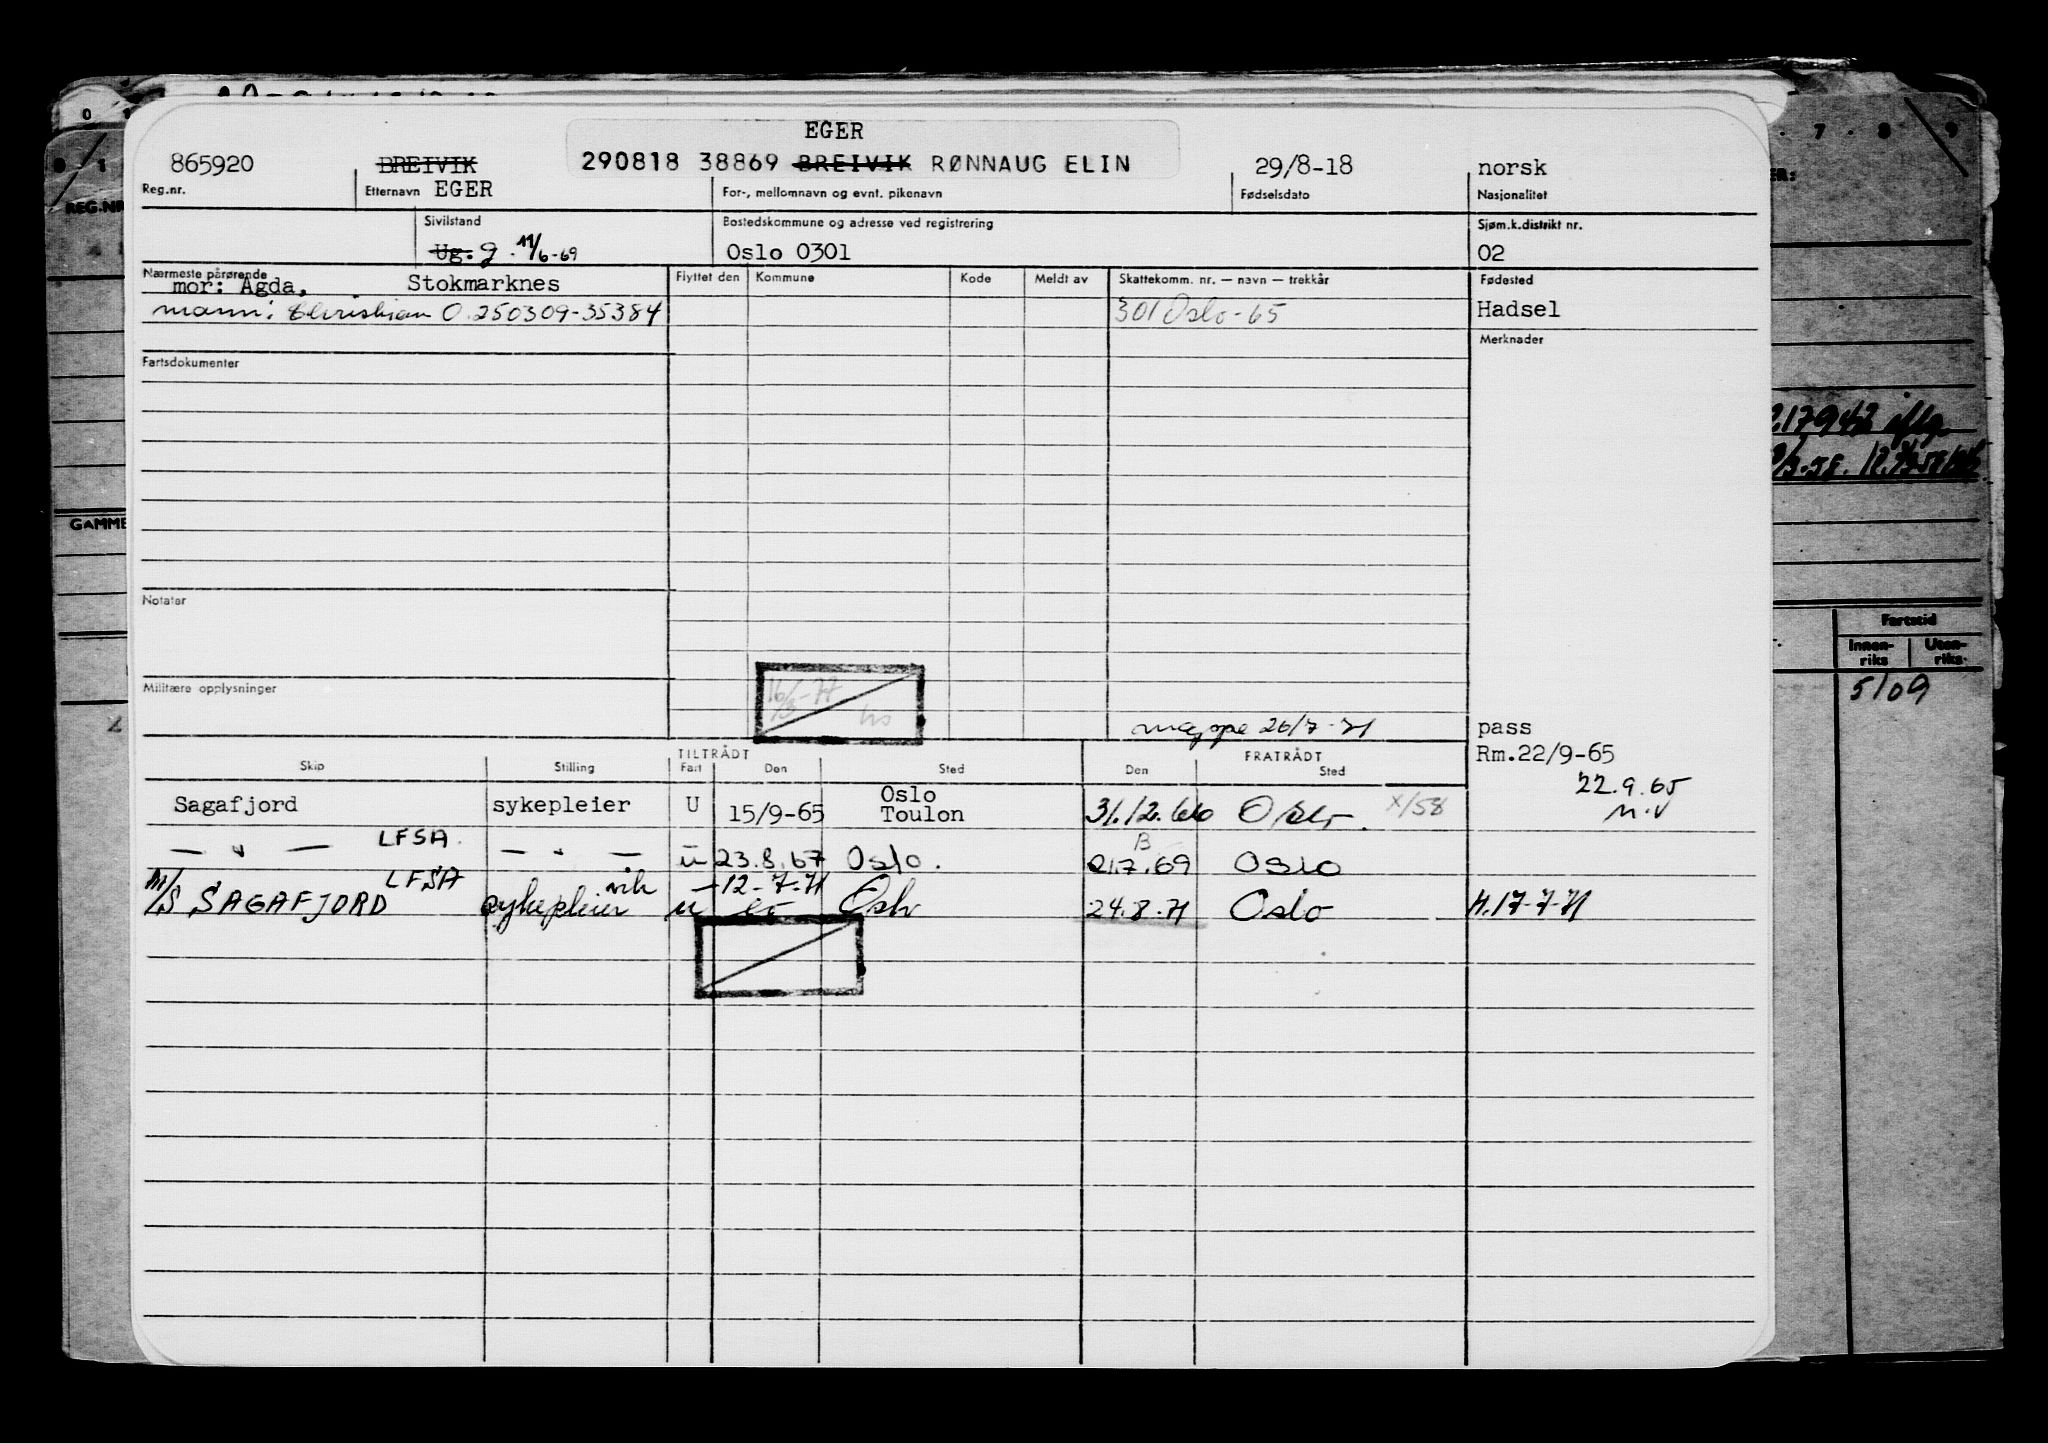 EGER
865920 BREIVIK 290818 38869 BREIVIK RØNNAUG ELIN 29/8-18 norsk
Reg.nr. Etternavn EGER For-, mellomnavn og evnt. pikenavn Fødselsdato Nasjonalitet
Sivilstand Bostedskommune og adresse ved registrering Sjøm.k.distrikt nr.
Ug. g. 11/6-69 Oslo 0301 02
Nærmeste pårørende Flyttet den Kommune Kode Meldt av Skattekomm. nr. — navn — trekkår Fødested
mor: Agda, Stokmarknes
mann: Christian O. 250309-35384 301 Oslo-65 Hadsel
Merknader
Fartsdokumenter
Notater
Militære opplysninger
16/3-77
mappe 26/7-71 pass
TILTRÅDT FRATRÅDT Rm.22/9-65
Skip Stilling Fart Den Sted Den Sted
22.9.65
Sagafjord sykepleier U 15/9-65 Oslo Toulon 31.12.66 Oslo. X/58
— " — LFSA — " — u 23.8.67 Oslo. 21.7.69 Oslo
B
M/S SAGAFJORD LFSA sykepleier vik u 12-7-71 Oslo 24.8.71 Oslo H.17-7-71
REG.NR
GAMME
7 8 9
217942 iflg.
Fartstid
Innen-riks Uten-riks
5109